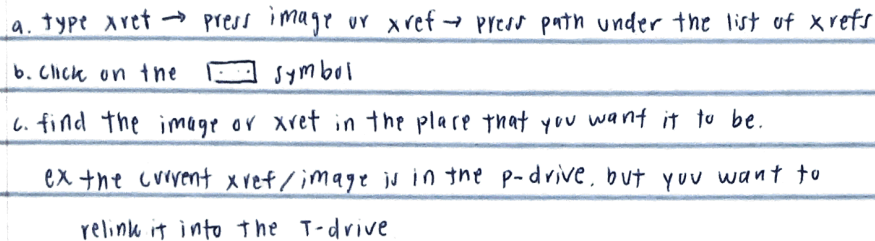 a. type xref → press image or xref → press path under the list of xrefs
b. click on the [...] symbol
c. find the image or xref in the place that you want it to be.
ex the current xref/image is in the p-drive, but you want to
relink it into the T-drive